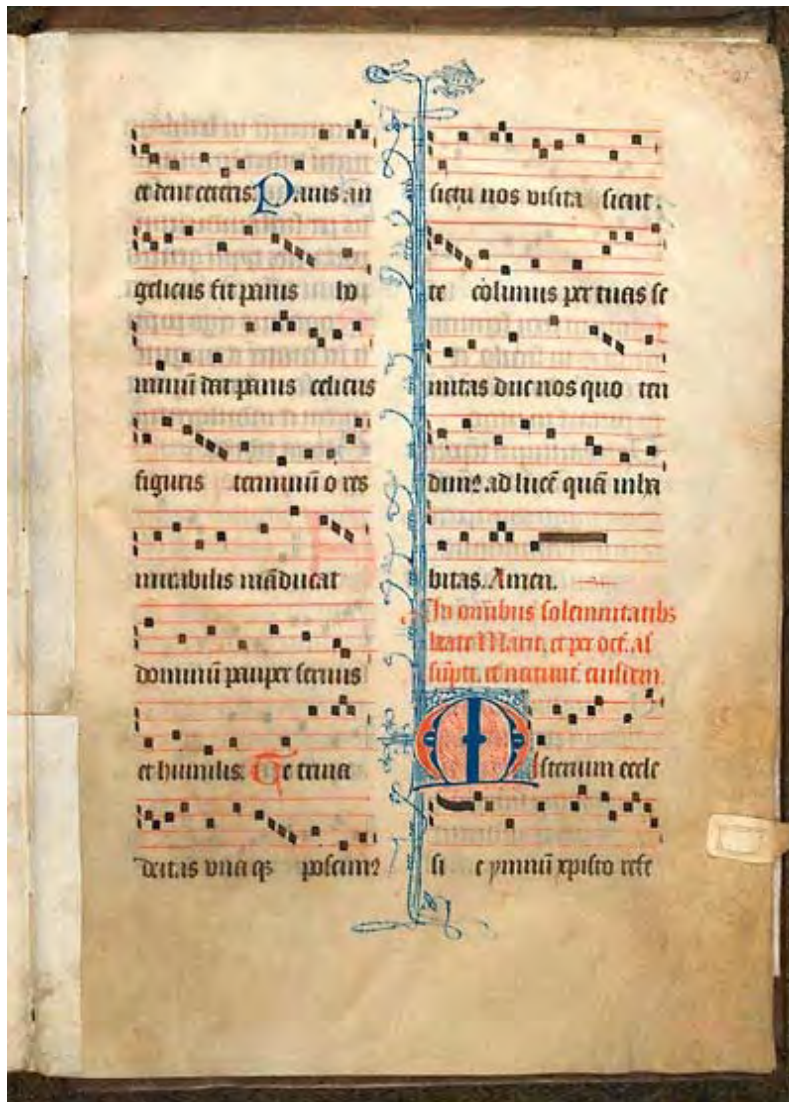 et dent ceteris. Panis an
gelicus fit panis ho
minū dat panis celicus
figuris terminū o res
mirabilis māducat
dominū pauper seruus
et humilis. Te trina
deitas vnaqꝫ poscimꝰ
sic tu nos visita sicut
te colimus per tuas se
mitas duc nos quo ten
dimꝰ ad lucē quā inha
bitas. Amen.
In omībus solemnitatibꝫ
beate Marie, et per oct. as
sūpte. et natiuit. eiusdem.
Misterium eccle
sie ymnū xpisto refe